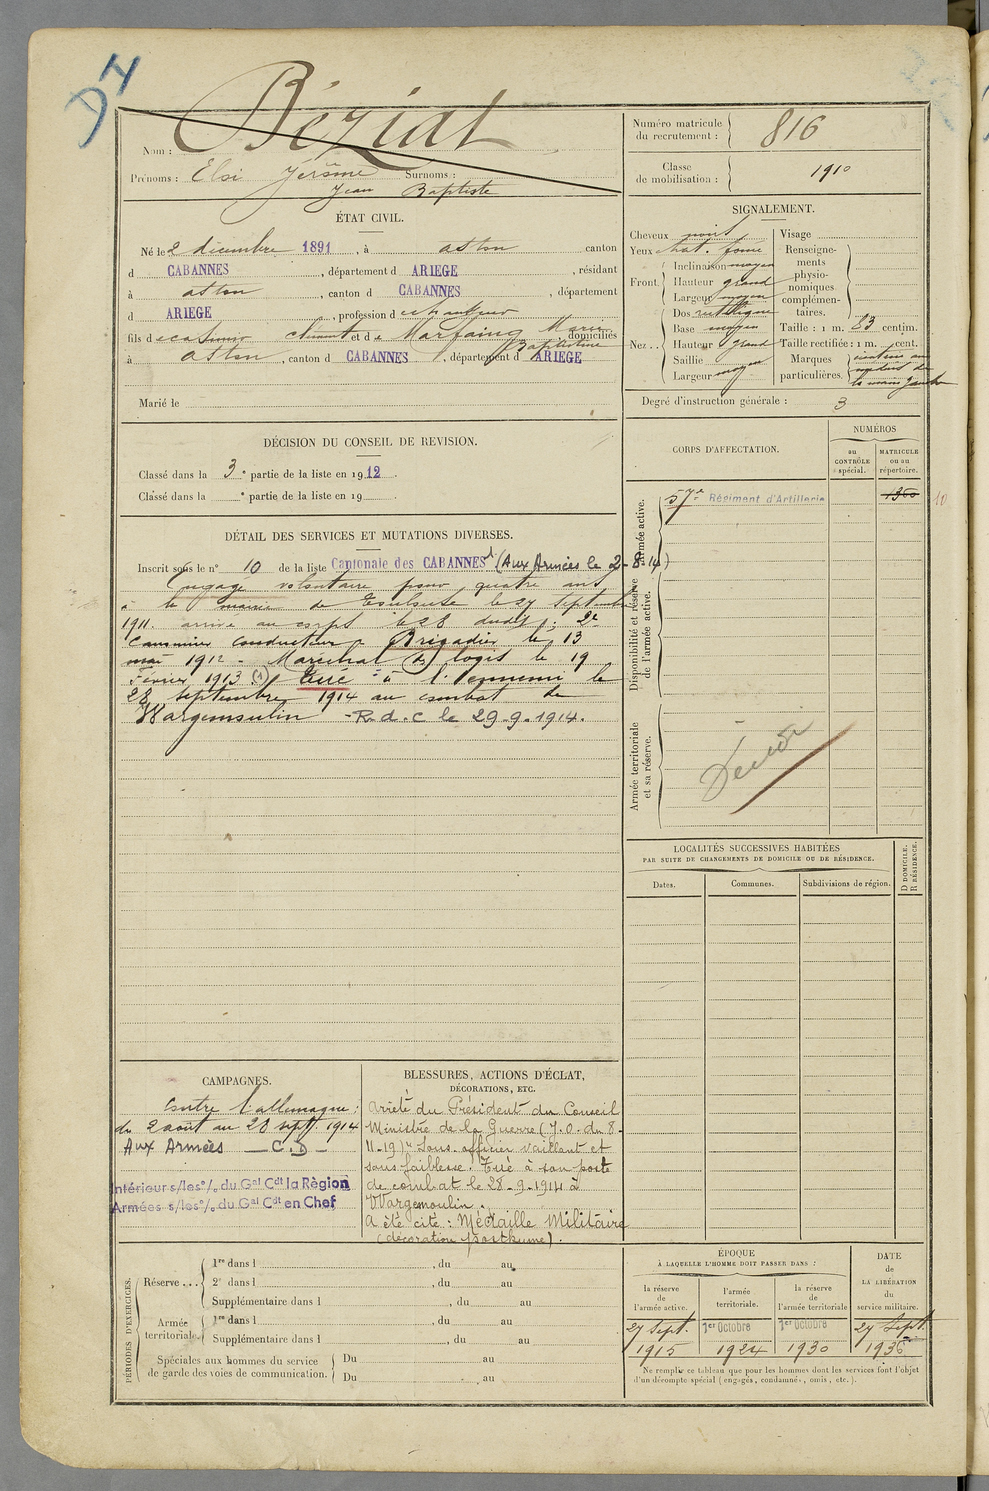 D4
Nom : Béziat
Numéro matricule du recrutement : 816
Prénoms : Eloi Jérôme Surnoms :
Jean Baptiste
Classe de mobilisation : 1910
ÉTAT CIVIL.
Né le 2 décembre 1891, à aston canton
d CABANNES, département d ARIEGE, résidant
à aston, canton d CABANNES, département
d ARIEGE, profession d
fils d et d e Marfaing Marie
Baptistine domiciliés
à aston, canton d CABANNES, département d ARIEGE
Marié le
SIGNALEMENT.
Cheveux noirs
Yeux chat. foncé
Front. Inclinaison moyen
Hauteur grand
Largeur moyen
Nez.. Dos rectiligne
Base moyen
Hauteur grand
Saillie
Largeur moyen
Visage
Renseignements physionomiques complémentaires.
Taille : 1 m. 63 centim.
Taille rectifiée : 1 m. cent.
Marques particulières. cicatrice au
la main gauche
Degré d'instruction générale : 3
DÉCISION DU CONSEIL DE REVISION.
Classé dans la 3e partie de la liste en 1912.
Classé dans la e partie de la liste en 19
CORPS D'AFFECTATION.
NUMÉROS
au CONTRÔLE spécial.
MATRICULE ou au répertoire.
Armée active.
57e Régiment d'Artillerie 1360
10
Disponibilité et réserve de l'armée active.
Armée territoriale et sa réserve.
Décédé
DÉTAIL DES SERVICES ET MUTATIONS DIVERSES.
Inscrit sous le n° 10 de la liste Cantonale des CABANNES (Aux Armées le 2-8-14)
Engagé volontaire pour quatre ans
à la mairie de Toulouse le 27 septembre
1911. arrivé au corps le 28 dudit : 2e
canonnier conducteur - Brigadier le 13
mai 1912 - Maréchal des logis le 19
Février 1913 (1) Tué à l'ennemi le
28 septembre 1914 au combat de
Wargemoulin - R.d.c le 29-9-1914.
LOCALITÉS SUCCESSIVES HABITÉES
PAR SUITE DE CHANGEMENTS DE DOMICILE OU DE RÉSIDENCE.
Dates.
Communes.
Subdivisions de région.
D DOMICILE. R RÉSIDENCE.
CAMPAGNES.
Contre l'allemagne :
du 2 août au 28 sept. 1914
Aux Armées — C.D —
Intérieur s/les o/. du Gal Cdt la Région
Armées s/les o/. du Gal Cdt en Chef
BLESSURES, ACTIONS D'ÉCLAT,
DÉCORATIONS, ETC.
Arrêté du Président du Conseil
Ministre de la Guerre (J.O. du 8-
11-19) "Sous-officier vaillant et
sans faiblesse. Tué à son poste
de combat le 28-9-1914 à
Wargemoulin.
A été cité : Médaille Militaire
(décoration posthume).
PÉRIODES D'EXERCICES.
Réserve...
1re dans l , du au
2e dans l , du au
Supplémentaire dans l , du au
Armée territoriale.
1re dans l , du au
Supplémentaire dans l , du au
Spéciales aux hommes du service de garde des voies de communication.
Du au
Du au
ÉPOQUE
À LAQUELLE L'HOMME DOIT PASSER DANS :
la réserve de l'armée active.
l'armée territoriale.
la réserve de l'armée territoriale
DATE de LA LIBÉRATION du service militaire.
27 Sept. 1er Octobre 1er Octobre 27 Sept.
1915 1924 1930 1936
Ne remplir ce tableau que pour les hommes dont les services font l'objet
d'un décompte spécial (engagés, condamnés, omis, etc.).